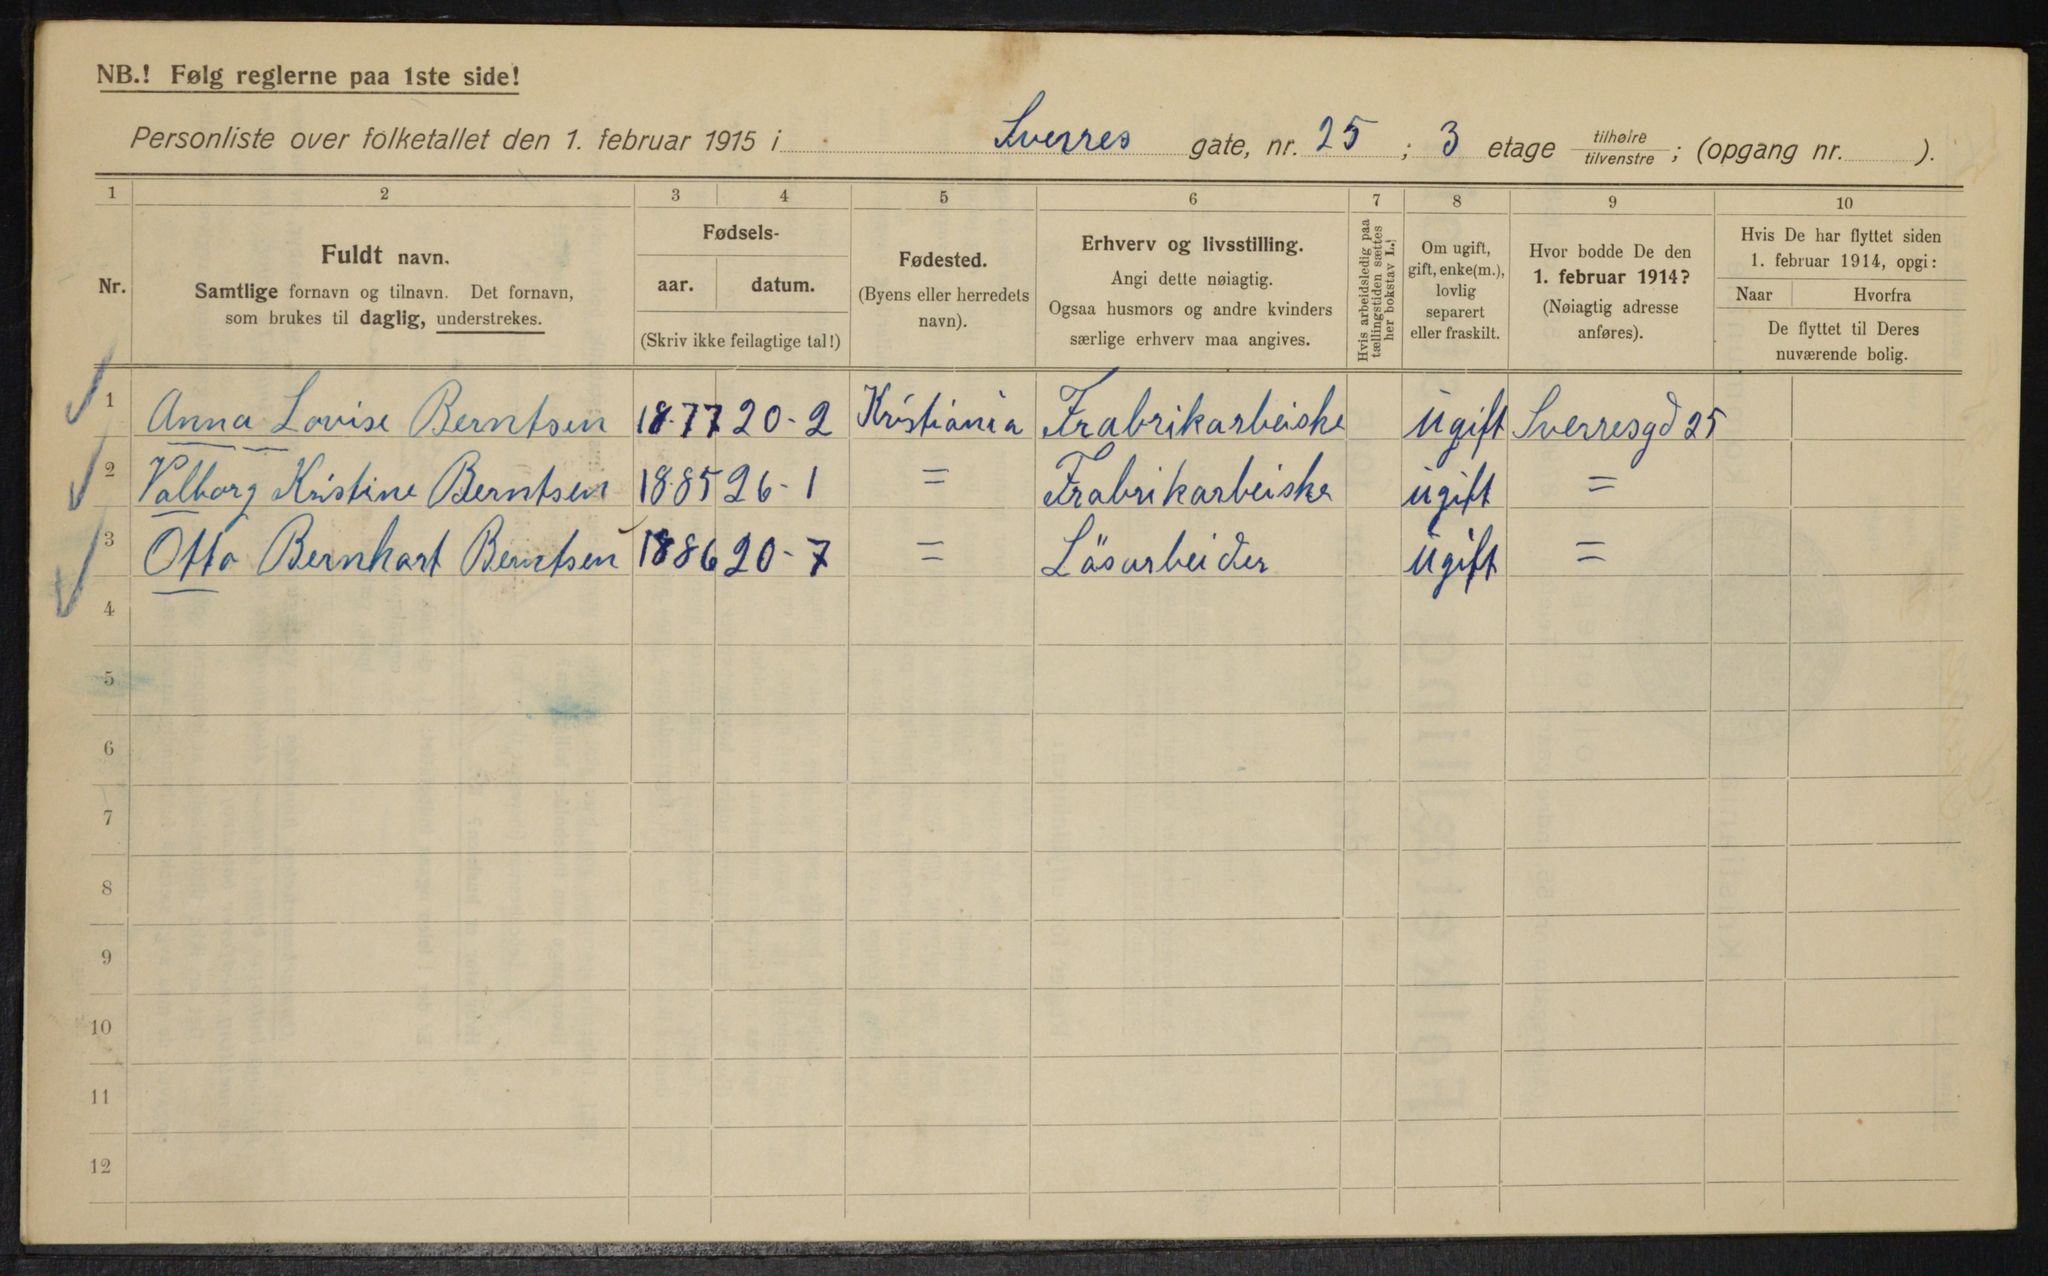 NB.! Følg reglerne paa 1ste side!
Personliste over folketallet den 1. februar 1915 i Sverres gate, nr. 25 ; 3 etage tilhøire/tilvenstre ; (opgang nr. ).
1 2 3 4 5 6 7 8 9 10
Nr.
Fuldt navn.
Samtlige fornavn og tilnavn. Det fornavn,
som brukes til daglig, understrekes.
Fødsels-
aar. datum.
(Skriv ikke feilagtige tal!)
Fødested.
(Byens eller herredets
navn).
Erhverv og livsstilling.
Angi dette nøiagtig.
Ogsaa husmors og andre kvinders
særlige erhverv maa angives.
Hvis arbeidsledig paa
tællingstiden sættes
her bokstav L.)
Om ugift,
gift, enke(m.),
lovlig
separert
eller fraskilt.
Hvor bodde De den
1. februar 1914?
(Nøiagtig adresse
anføres).
Hvis De har flyttet siden
1. februar 1914, opgi:
Naar Hvorfra
De flyttet til Deres
nuværende bolig.
1 Anna Lovise Berntsen 1877 20-2 Kristiania Frabrikarbeiske ugift Sverresgd 25
2 Valborg Kristine Berntsen 1885 26-1 = Frabrikarbeiske ugift =
3 Otto Bernhart Berntsen 1886 20-7 = Løsarbeider ugift =
4
5
6
7
8
9
10
11
12